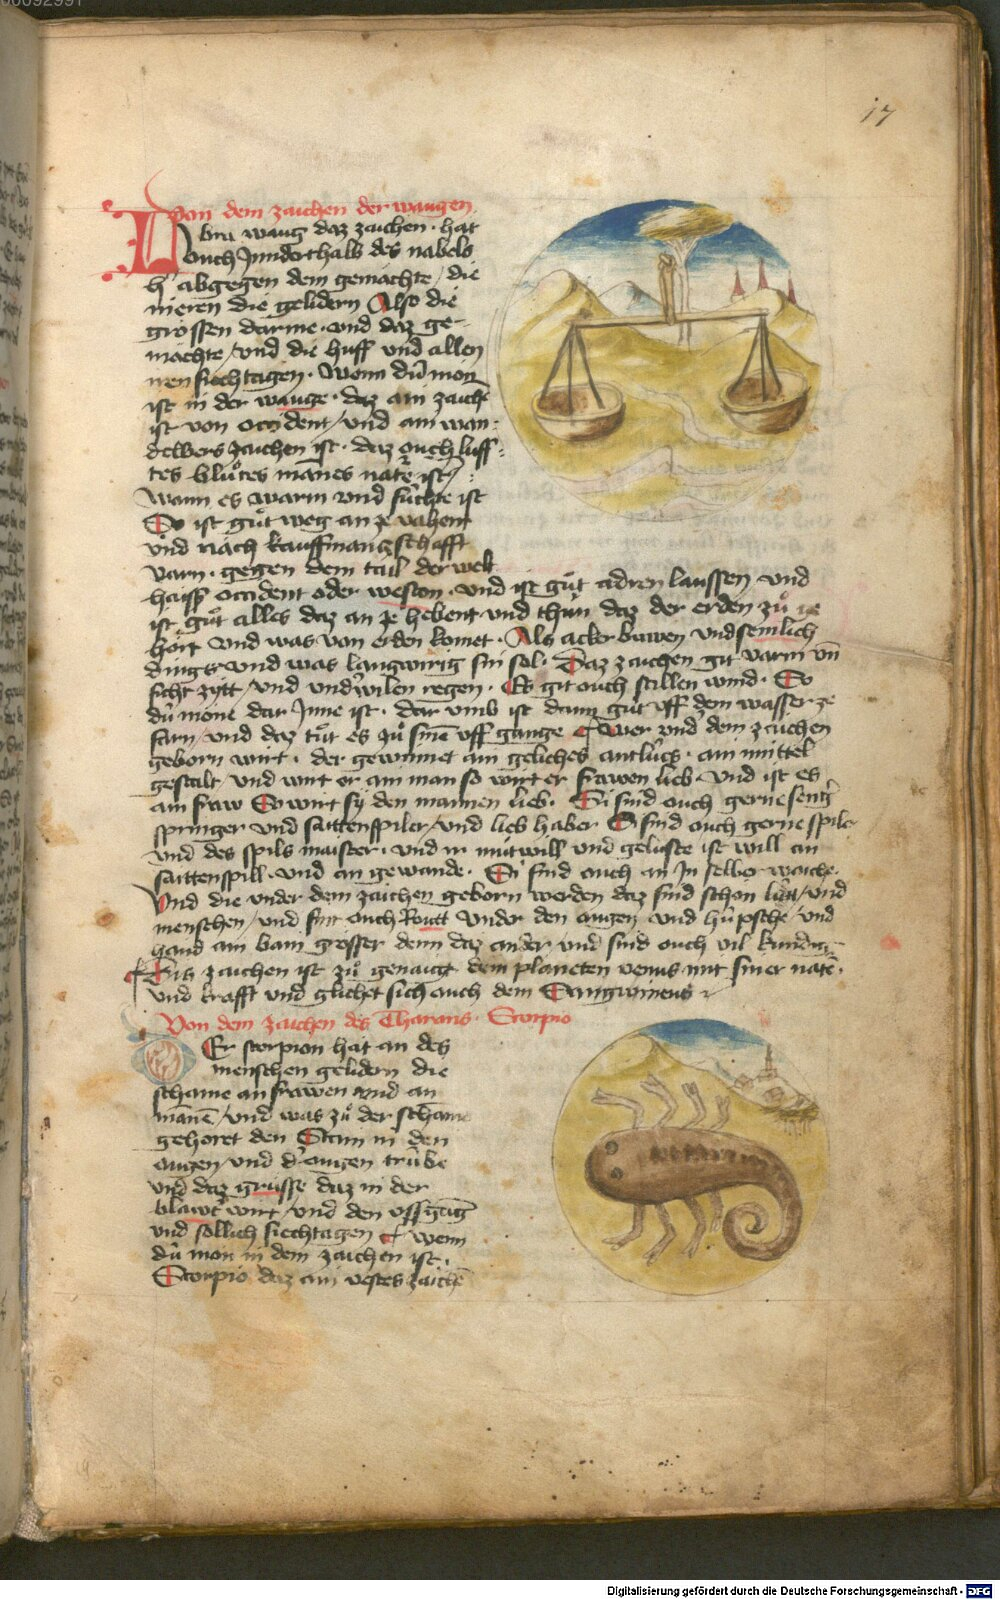 17
Von dem zaichen der waugen
Libra waug daz zaichen · hat
ouch Inderthalb des nabels
abgegen dem gemächte / die
nieren die gelidern Also die
grossen därme · vnd daz ge-
mächte / vnd die huff vnd allen
nen siechtagen · Wenn dü mon
ist in der wauge · daz ain zaiche
ist von occident / vnd ain wan-
delbers zaichen ist · daz ouch luff-
tes blůtes mānes natē ist /
Wann es warm vnd füchte ist
So ist gůt weg an ze vahent
vnd nach kauffmanzschafft
varn · gegen dem tail der welt
haist occident oder weston · vnd ist gůt adren laussen vnd
ist gůt alles daz an ze hebent vnd thůn daz der erden zů ge
hört vnd was von erden komet · Als acker buwen vnd semlich
dings vnd was langwirig sin sol · Daz zaichen git varm vn̄
ficht zytt / vnd vndwilen regen · Es git ouch stillen wind · So
dü mone dar Inne ist · dar vmb ist dann gůt vff dem wasser ze
farn / vnd daz tůt es zů sinē vff gange Wer vnd dem zaichen
geborn wirt · der gewinnet ain geliches antlüs · ain mittel
gestalt / vnd wirt er ain man so wirt er frawen lieb · vnd ist es
ain fraw So wirt sy den mannen lieb · Si sind ouch gerne seng
springer vnd saittenspiler / vnd lieb haber Si sind ouch gerne spiler
vnd des spils maister · vnd ir mütwill vnd gelüste ist will an
saittenspill · vnd an gewande · Si sind ouch an In selber waiche ·
Vnd die vnder dem zaichen geborn werden daz sind schon lütt / vnd
menschen / vnd sint ouch Routt vnder den augen vnd hüpsche vnd
hand ain bain grösser denn daz ander / vnd sind ouch vil kündig
Dis zaichen ist zů genaigt dem planeten venus mit siner natē ·
vnd krafft vnd glichet sich ouch dem Sangwineus
Von dem zaichen des Tharans · Scorpio
Er scorpion hat an des
menschen gelidern die
schame an frawen vnd an
manē / vnd was zů der schame
gehöret den Stain in den
augen / vnd d' augen trübe
vnd daz grusse daz in der
blawt' wirt / vnd den vffgāg
vnd sollich siechtagen wenn
dü mon in dem zaichen ist ·
Scorpio daz ain vestes zaichē
Digitalisierung gefördert durch die Deutsche Forschungsgemeinschaft - DFG